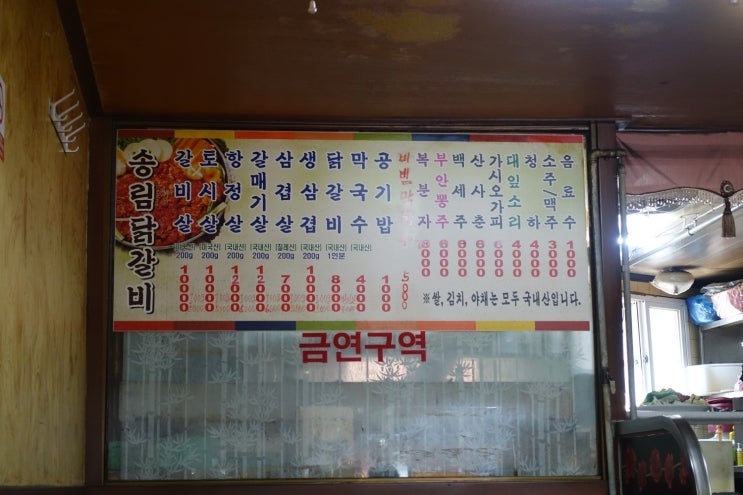 송림닭갈비
갈비살
토시살
항정살
갈매기살
삼겹살
생삼겹
닭갈비
막국수
공기밥
복분자
부안뽕주
백세주
산사춘
가시오가피
대잎소리
청하
소주/맥주
음료수
[미국산] [국내산] [국내산] [칠레산] [국내산] [국내산] [국내산]
200g 200g 200g 200g 200g 200g 1인분
10000
7000
8000
4000
1000
8000
6000
6000
6000
4000
4000
3000
1000
※쌀, 김치, 야채는 모두 국내산입니다.
금연구역